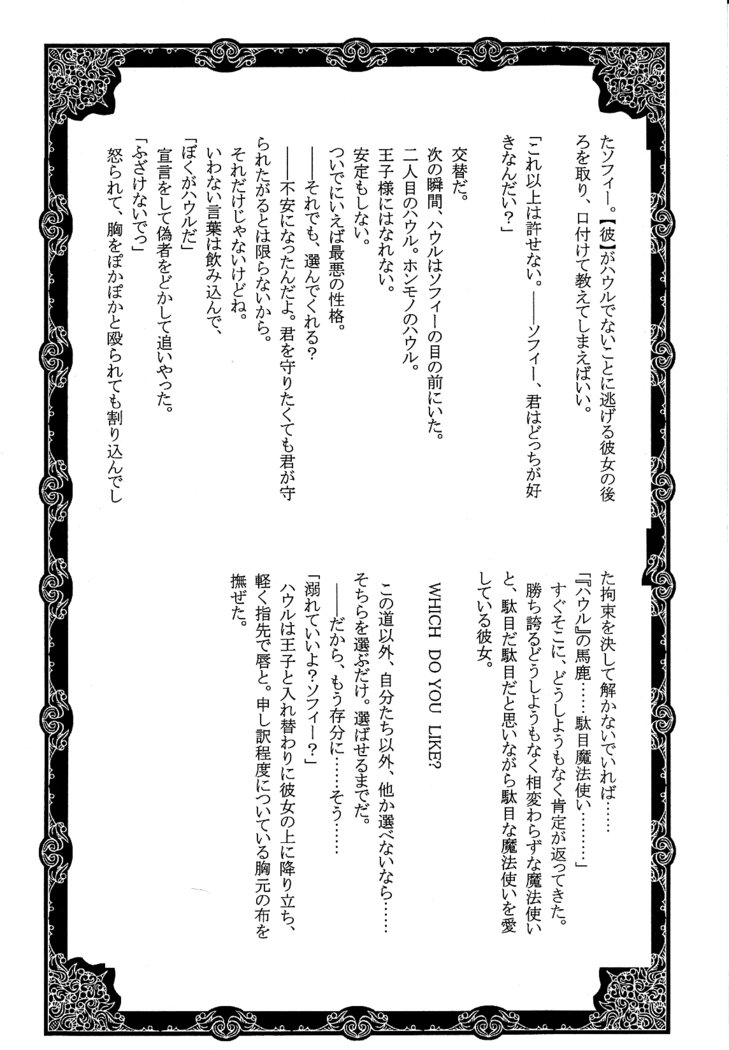 たソフィー。【彼】がハウルでないことに逃げる彼女の後
ろを取り、口付けて教えてしまえばいい。
「これ以上は許せない。――ソフィー、君はどっちが好
きなんだい？」
交替だ。
次の瞬間、ハウルはソフィーの目の前にいた。
二人目のハウル。ホンモノのハウル。
王子様にはなれない。
安定もしない。
ついでにいえば最悪の性格。
――それでも、選んでくれる？
――不安になったんだよ。君を守りたくても君が守
られたがるとは限らないから。
それだけじゃないけどね。
いわない言葉は飲み込んで、
「ぼくがハウルだ」
宣言をして偽者をどかして追いやった。
「ふざけないでっ」
怒られて、胸をぽかぽかと殴られても割り込んでし
た拘束を決して解かないでいれば……
「『ハウル』の馬鹿……駄目魔法使い………」
すぐそこに、どうしようもなく肯定が返ってきた。
勝ち誇るどうしようもなく相変わらずな魔法使い
と、駄目だ駄目だと思いながら駄目な魔法使いを愛
している彼女。
WHICH DO YOU LIKE?
この道以外、自分たち以外、他か選べないなら……
そちらを選ぶだけ。選ばせるまでだ。
――だから、もう存分に……そう……
「溺れていいよ？ソフィー？」
ハウルは王子と入れ替わりに彼女の上に降り立ち、
軽く指先で唇と。申し訳程度についている胸元の布を
撫ぜた。